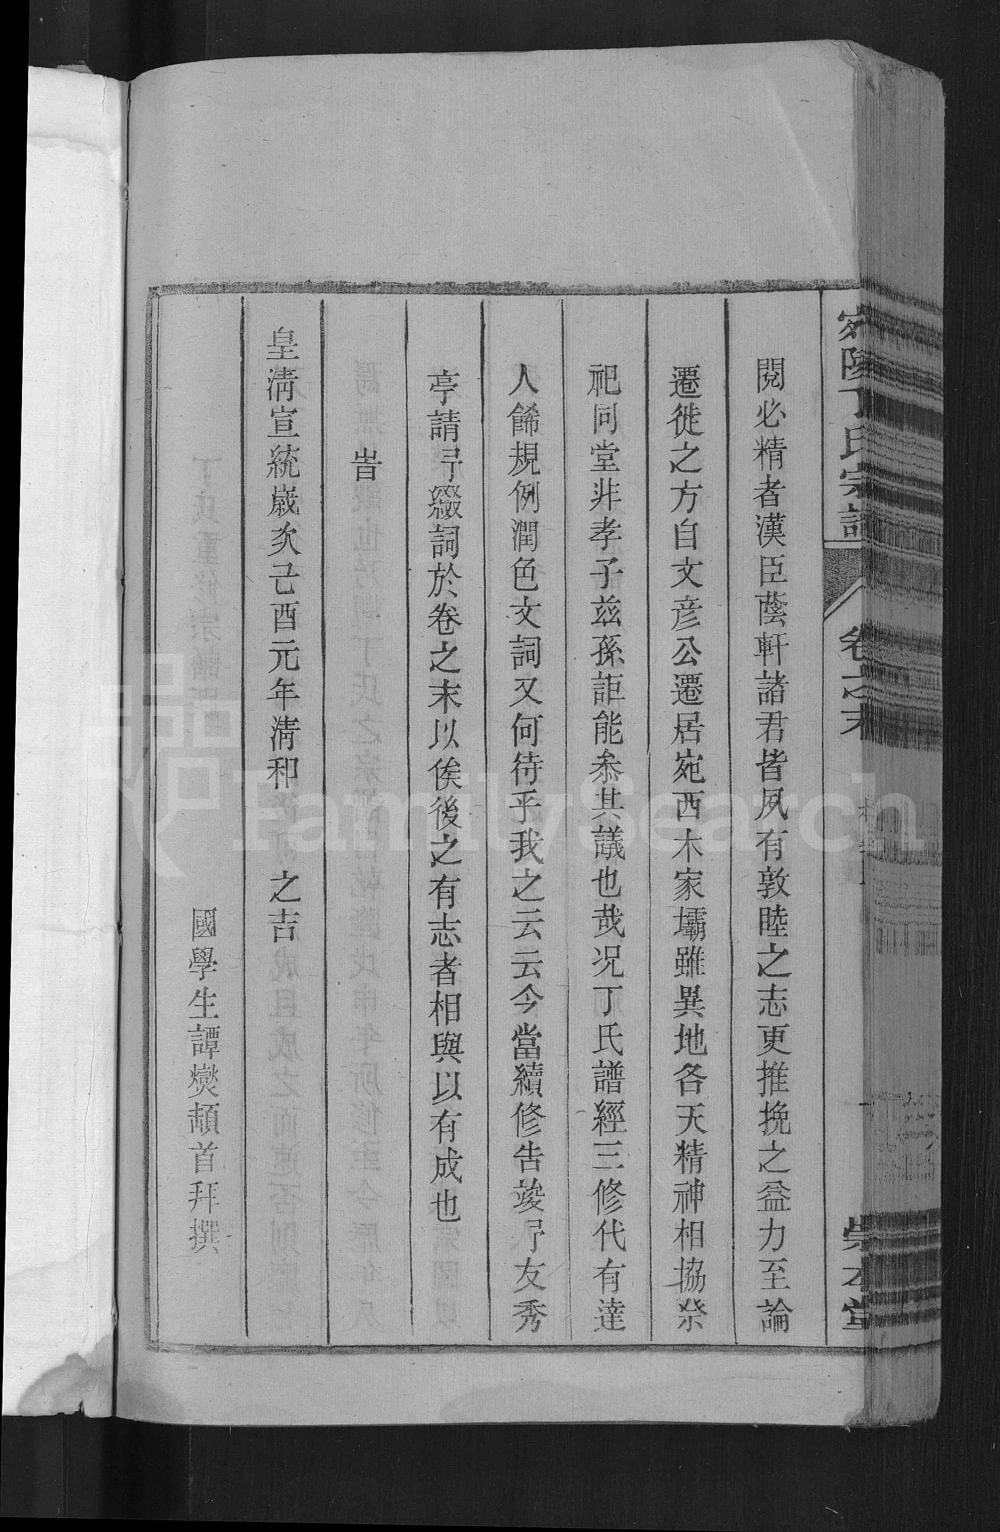 宛陵丁氏宗譜 卷之末
閱必精者漢臣蔭軒諸君皆夙有敦睦之志更推挽之益力至論
遷徙之方自文彥公遷居宛西木家壩雖異地各天精神相協祭
祀同堂非孝子玆孫詎能叅其議也哉况丁氏譜經三修代有達
人餙規例潤色文詞又何待乎我之云云今當續修告竣㝵友秀
亭請㝵綴詞於卷之末以俟後之有志者相與以有成也
旹
皇淸宣統嵗次己酉元年淸和 之吉
國學生譚爕頡首拜撰
FamilySearch